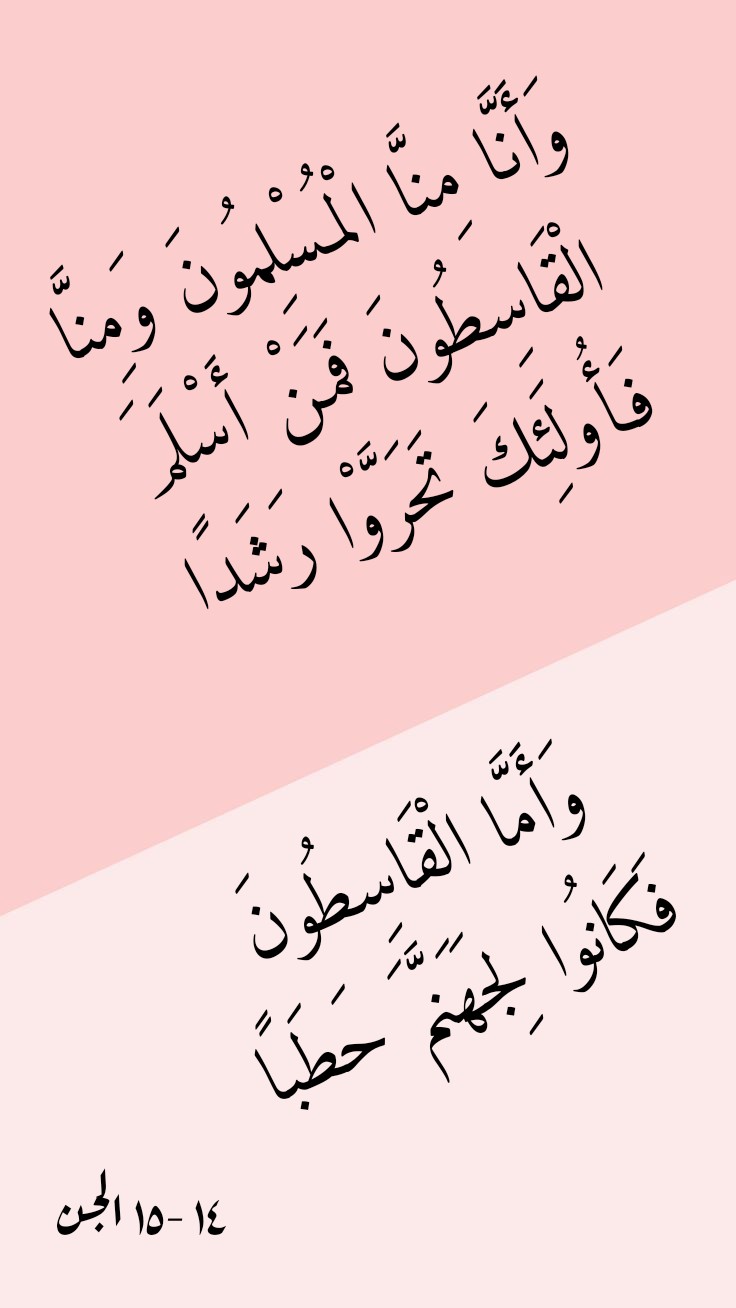 وَأَنَّا مِنَّا الْمُسْلِمُونَ وَمِنَّا
الْقَاسِطُونَ فَمَنْ أَسْلَمَ
فَأُولَئِكَ تَحَرَّوْا رَشَدًا
وَأَمَّا الْقَاسِطُونَ
فَكَانُوا لِجَهَنَّمَ حَطَبًا
١٤ -١٥ الجن